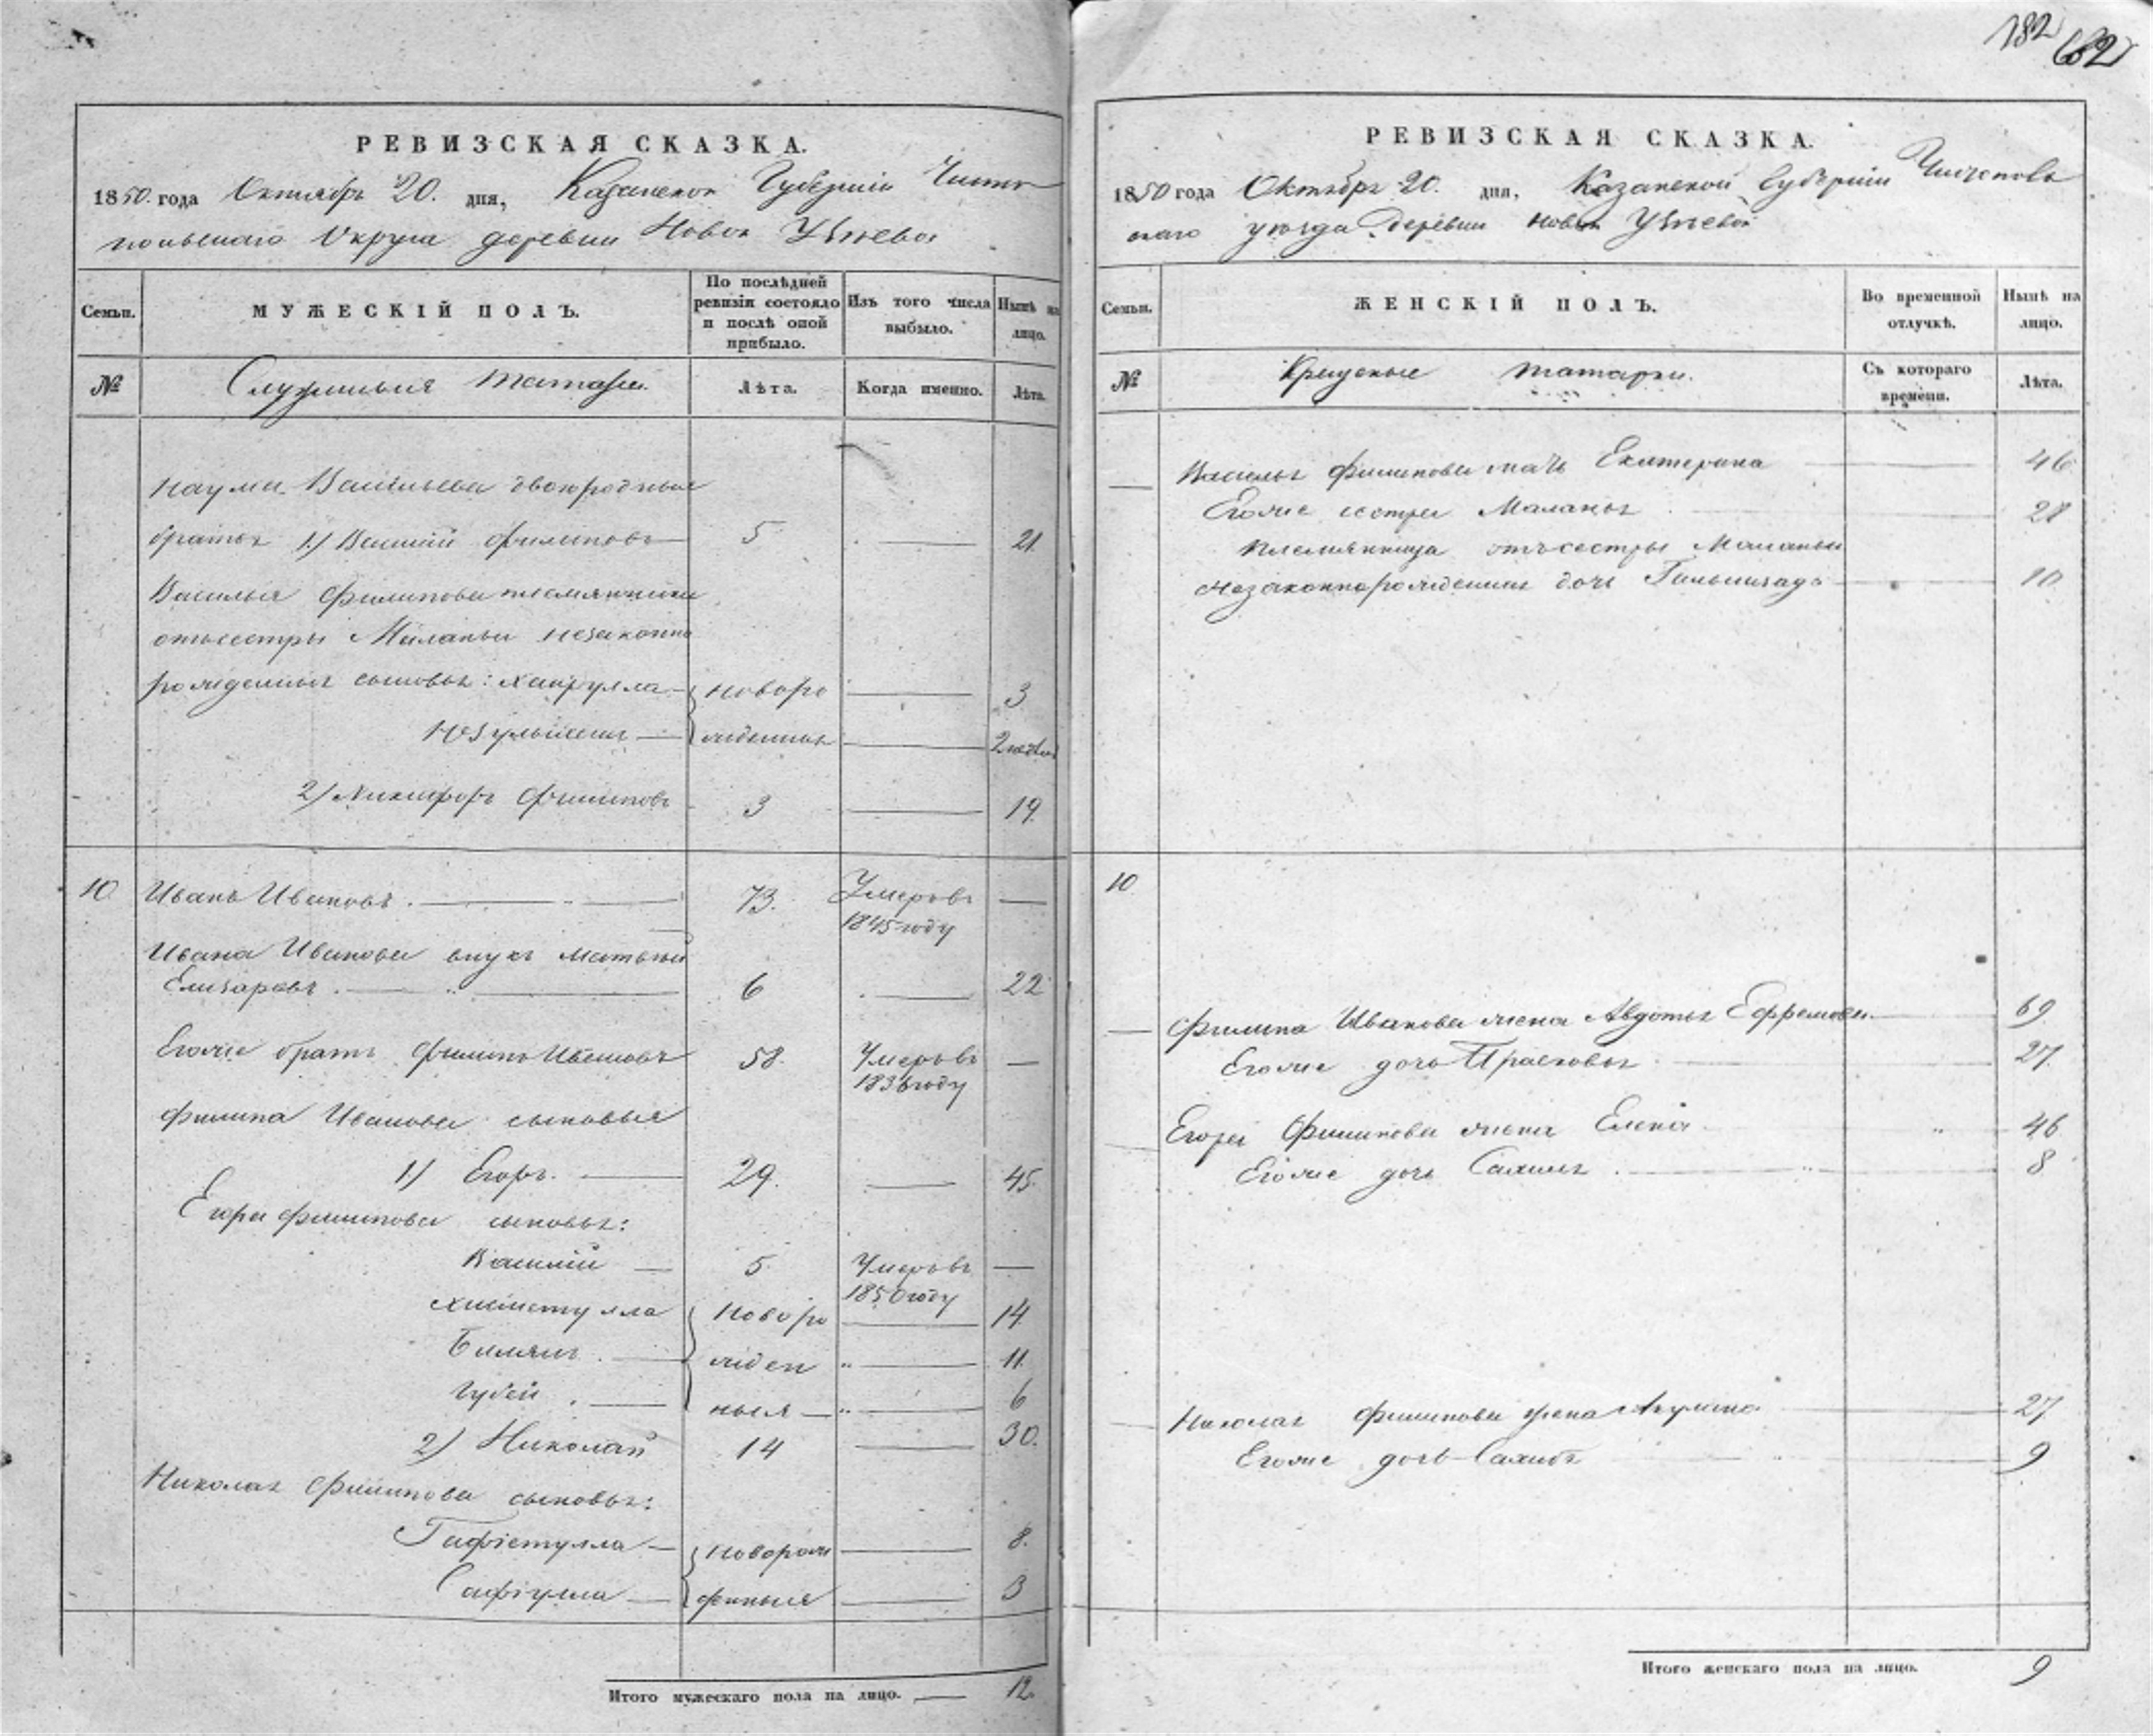 182
РЕВИЗСКАЯ СКАЗКА.
1850 года Октября 20. дня, Казанской Губернии Чисто
польскаго Округа деревни Новой
Семьи.
МУЖЕСКІЙ ПОЛЪ.
По послѣдней ревизіи состояло и послѣ оной прибыло.
Изъ того числа выбыло.
Нынѣ на лицо.
№
Служилыя татары.
Лѣта.
Когда именно.
Лѣта.
Наума Васильева двоюродныя
братья 1) Василий Филиповъ 5 21.
Василья Филипова племянники
отъ сестры Маланьи незаконно
рожденныя сыновья: Хайрулла новоро 3
жденныя
2) Никифоръ Филиповъ 3 19.
10. Иванъ Ивановъ. 73. Умеръ въ
1845 году
Ивана Иванова внукъ Матвѣй
Елизаровъ. 6 22
Егоже братъ Филипъ Ивановъ 58. Умеръ въ
183 году
Филипа Иванова сыновья
1) Егоръ. 29. 45.
Егора Филипова сыновья:
Василий 5 Умеръ въ
1850 году
Новоро 14.
жден 11.
ныя 6
2) Николай 14 30.
Николая Филипова сыновья:
новорож 8.
Сафіулла денныя 3
Итого мужескаго пола на лицо. 12.
РЕВИЗСКАЯ СКАЗКА.
1850 года Октября 20. дня, Казанской Губернии Чистополь
скаго уезда деревни Новой
Семьи.
ЖЕНСКІЙ ПОЛЪ.
Во временной отлучкѣ.
Нынѣ на лицо.
№
татарки.
Съ котораго времени.
Лѣта.
Василья Филипова мать Екатерина 46
Егоже сестра Маланья 28
племянница отъ сестры Маланьи
незаконнорожденная дочь 10
10
Филипа Иванова жена Авдотья Ефремова 69
Егоже дочь Прасковья 27.
Егора Филипова жена Елена 46
Егоже дочь 8
Николая Филипова жена Акулина 27
Егоже дочь 9
Итого женскаго пола на лицо. 9